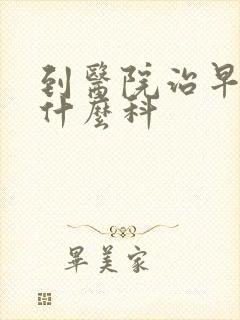 到醫院治早
什麼科
畢美家